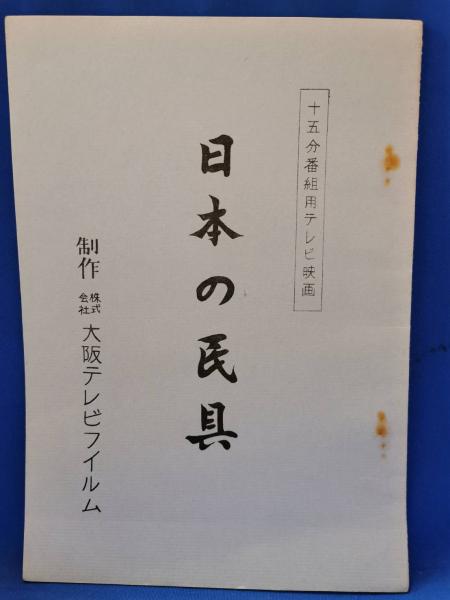 十五分番組用テレビ映画
日本の民具
制作 株式会社 大阪テレビフイルム